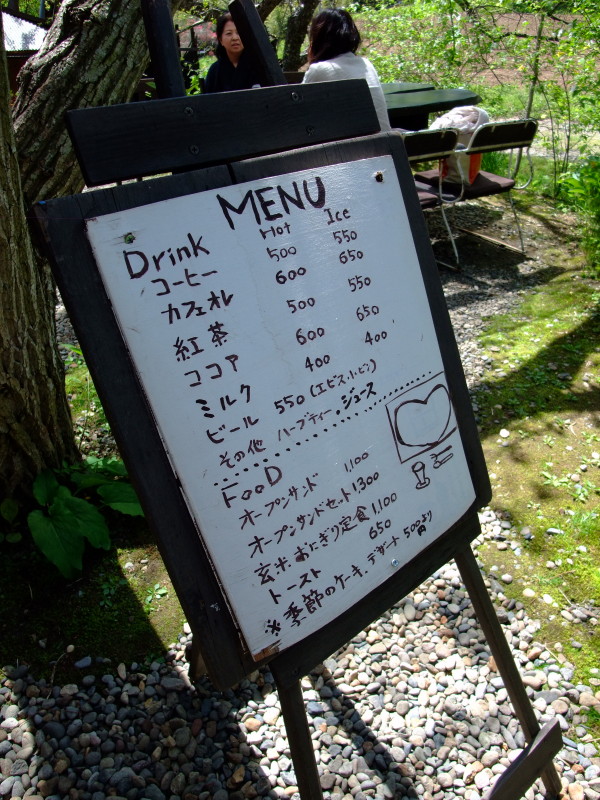 MENU
Drink Hot Ice
コーヒー 500 550
カフェオレ 600 650
紅茶 500 550
ココア 600 650
ミルク 400 400
ビール 550 (エビス・小ビン)
その他 ハーブティー ジュース
FOOD
オープンサンド 1,100
オープンサンドセット 1,300
玄米おにぎり定食 1,100
トースト 650
※季節のケーキ、デザート 500円より